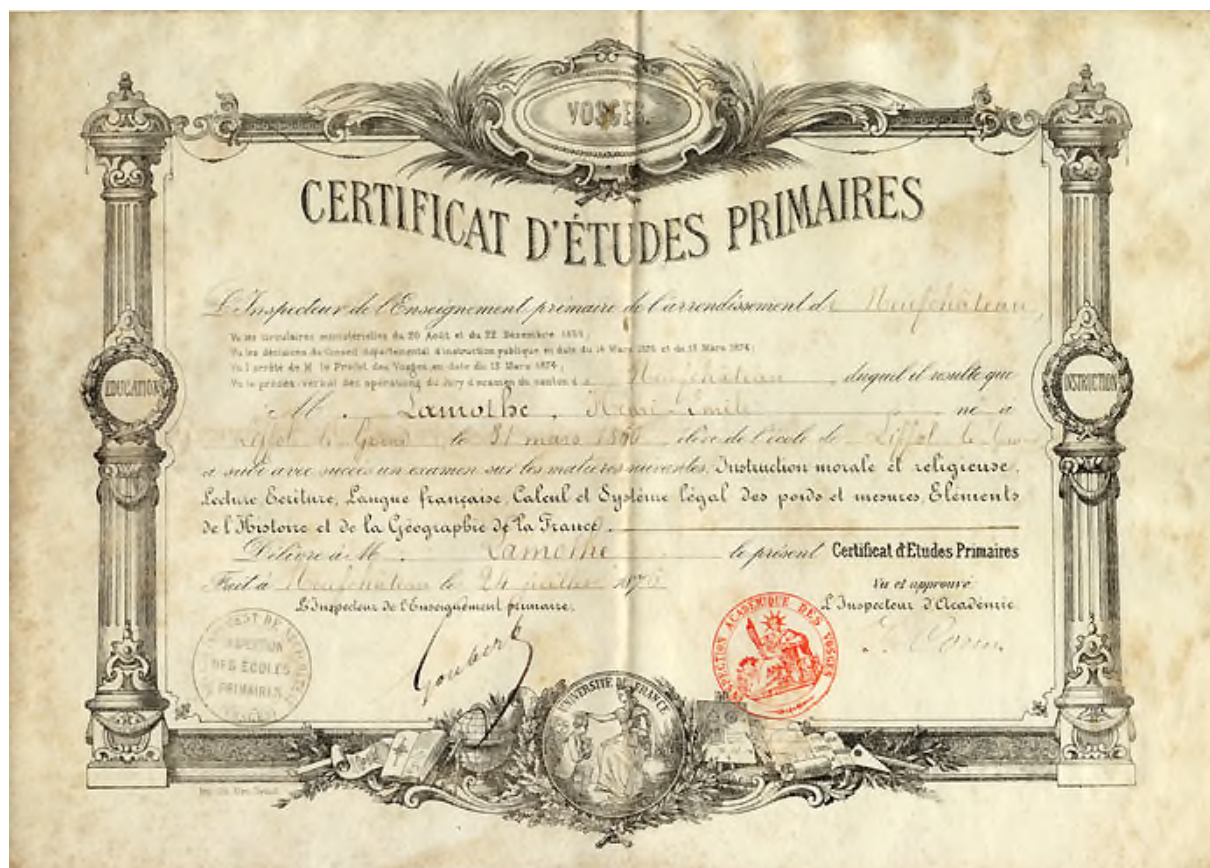 VOSGES.
CERTIFICAT D'ÉTUDES PRIMAIRES
L'Inspecteur de l'Enseignement primaire de l'arrondissement de Neufchâteau,
Vu les circulaires ministérielles du 20 Août et du 22 Décembre
Vu les décisions du Conseil départemental d'instruction publique en date du 14 Mars et du 13 Mars 1874;
Vu l'arrêté de M. le Préfet des Vosges, en date du 13 Mars 1874;
Vu le procès-verbal des opérations du Jury d'examen du canton de Neufchâteau duquel il résulte que
EDUCATION
INSTRUCTION
M. Lamothe, Henri Emile né à
Liffol le Grand le 31 mars 1866 élève de l'école de Liffol le
a subi avec succès un examen sur les matières suivantes, Instruction morale et religieuse,
Lecture, Ecriture, Langue française, Calcul et Système légal des poids et mesures, Eléments
de l'Histoire et de la Géographie de la France.
Délivré à M. Lamothe le présent Certificat d'Etudes Primaires
Fait à Neufchâteau le 24 juillet 1876
Vu et approuvé
L'Inspecteur de l'Enseignement primaire,
L'Inspecteur d'Académie
INSPECTION
DES ÉCOLES
PRIMAIRES
VOSGES
Goubert
INSPECTION ACADÉMIQUE DES VOSGES
UNIVERSITÉ DE FRANCE